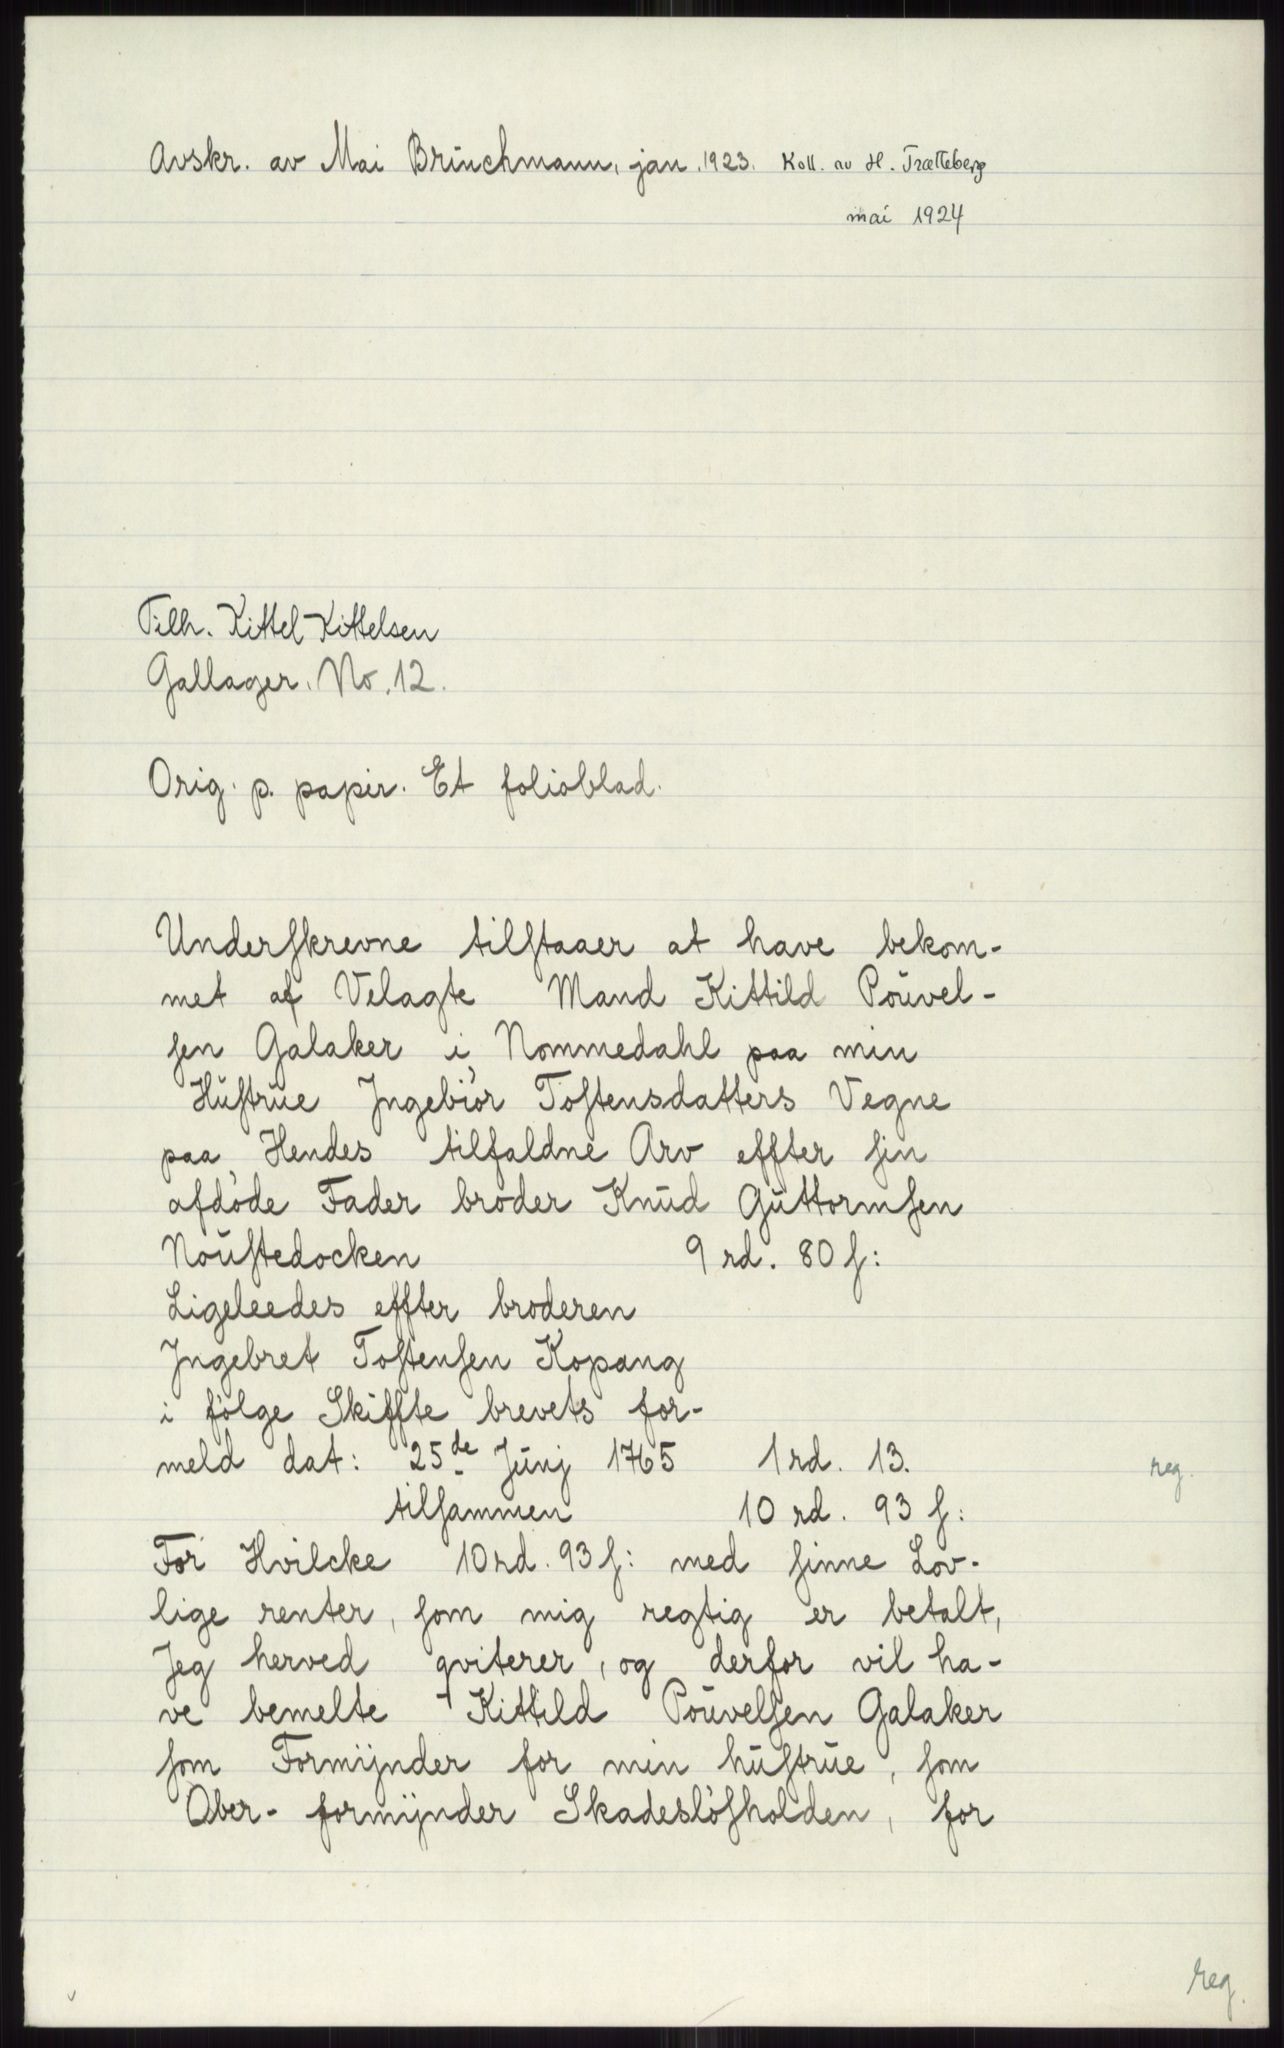 Avskr. av Mai Brünchmann, jan. 1923. Koll. av H. Trætteberg
mai 1924
Tilh. Kittel Kittelsen
Gallager. No. 12.
Orig. p. papir. Et folioblad.
Underskrevne tilstaaer at have bekom-
met af Velagte Mand Kittild Poüvel-
sen Galaker i Nommedahl paa min
Hüstrüe Jngebiör Tostensdatters Vegne
paa Hendes tilfaldne Arv effter sin
afdöde Fader broder Knüd Güttormsen
Noüstedocken 9 rd. 80 s:
Ligeleedes effter broderen
Jngebret Tostensen Kopang
i fölge Skiffte brevets for-
meld dat: 25de Jünj 1765 1 rd. 13.
reg.
tilsammen 10 rd. 93 s:
For Hvilcke 10 rd. 93 s: med sinne Lov-
lige renter, som mig regtig er betalt,
Jeg herved qviterer, og derfor vil ha-
ve bemelte Kittild Poüvelsen Galaker
som Formÿnder for min hüstrüe, som
Ober-formÿnder Skadeslösholden, for
reg.